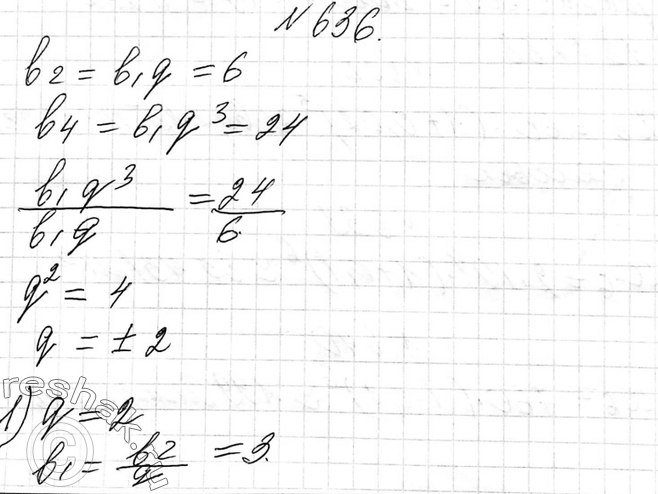 №636.
b2 = b1q = 6
b4 = b1q³ = 24
b1q³/b1q = 24/6
q² = 4
q = ±2
1) q = 2
b1 = b2/q = 3.
reshak.ru